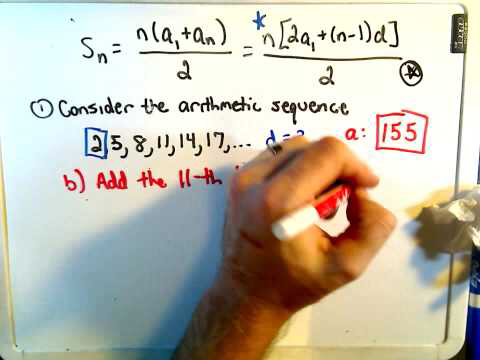 Sₙ = n(a₁+aₙ)/2 = *n[2a₁+(n-1)d]/2
① Consider the arithmetic sequence
2 5, 8, 11, 14, 17, ... d = 3 a: 155
b) Add the 11-th